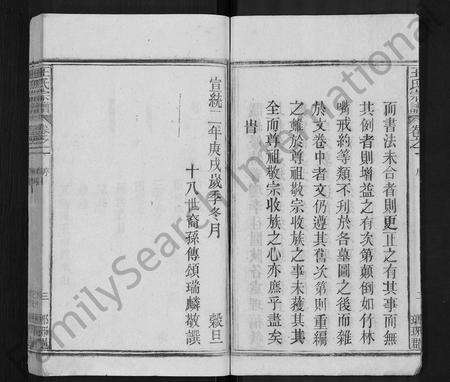 而書法未合者則更正之有其事而無
其例者則增益之有次第顛倒如竹林
嘴戒約等類不刋於各墓圖之後而雜
於文卷中者文仍遵其舊次第則重編
之雖於尊祖敬宗收族之事未獲其其
全而尊祖敬宗收族之心亦庶乎盡矣
旹
宣統二年庚戌歲季冬月 穀旦
十八世裔孫傳頌瑞麟敬譔
王氏宗譜
卷之一
序
三
FamilySearch International